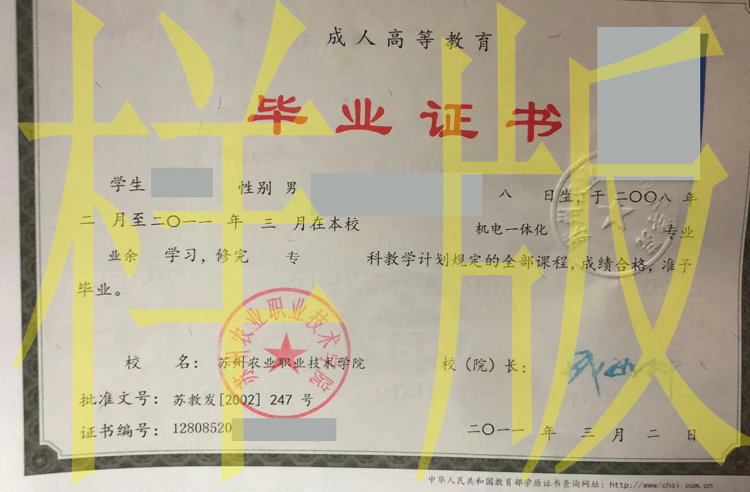 成人高等教育
毕业证书
学生 性别 男 八 日生，于二〇〇八 年
二 月至二〇一一 年 三 月在本校 机电一体化 专业
业余 学习，修完 专 科教学计划规定的全部课程，成绩合格，准予
毕业。
校 名： 苏州农业职业技术学院 校（院）长：
批准文号： 苏教发[2002] 247 号
证书编号： 12808520
二〇一一 年 三 月 二 日
中华人民共和国教育部学历证书查询网址：http://www.chsi.com.cn
样版
苏州农业职业技术学院